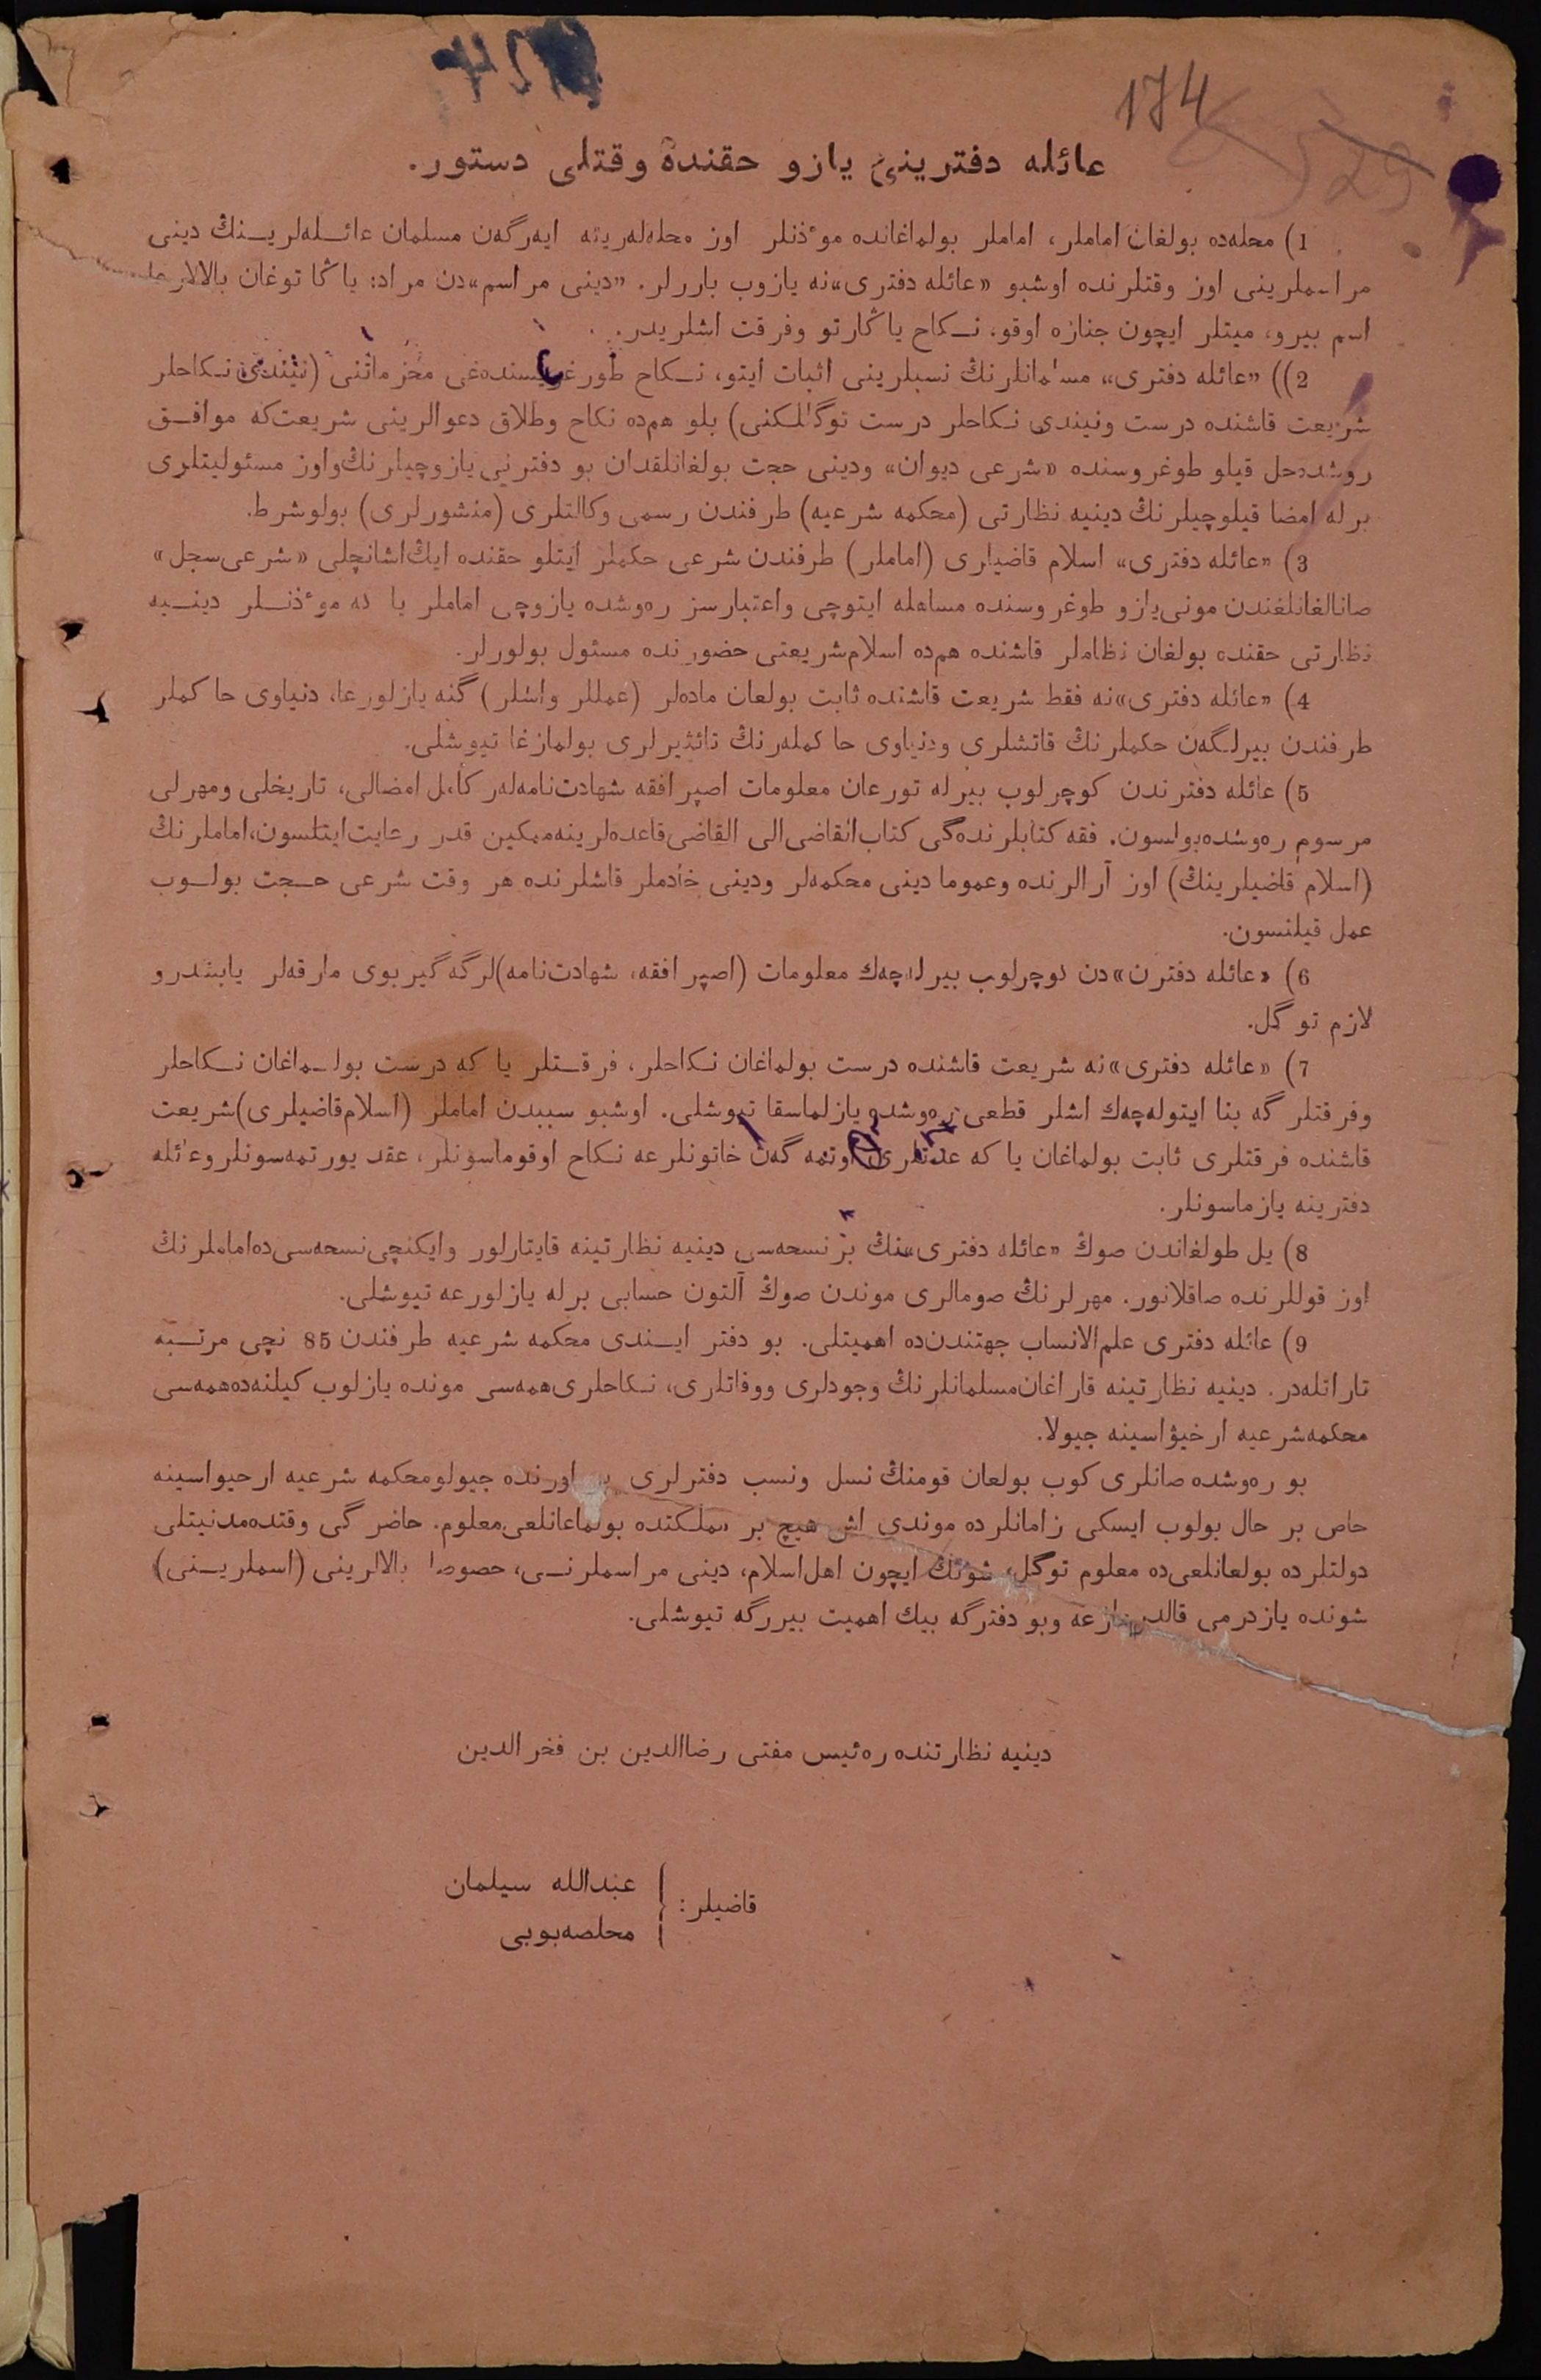 174
529
عائله دفترينى يازو حقنده وقتلى دستور.
1) محله‌ده بولغان اماملر، اماملر بولماغانده موٴذنلر اوز محله‌له‌رينه ايه‌رگه‌ن مسلمان عائـله‌لريـنڭ دينى
مراسملرينى اوز وقتلرنده اوشبو «عائله دفترى»نه يازوب باررلر. «دينى مراسم»دن مراد: ياڭا توغان بالالارغا
اسم بيرو، ميتلر ايچون جنازه اوقو، نـكاح ياڭارتو وفرقت اشلريدر.
2)) «عائله دفترى» مسلمانلرنڭ نسبلرينى اثبات ايتو، نـكاح طورغوسنده‌غى محرماتنى (نيندى نـكاحلر
شريعت قاشنده درست ونيندى نـكاحلر درست توگللـكنى) بلو هم‌ده نكاح وطلاق دعوالرينى شريعت‌كه موافـق
روشده‌حل قيلو طوغروسنده «شرعى ديوان» ودينى حجت بولغانلقدان بو دفترنى يازوچيلرنڭ‌واوز مسئوليتلرى
برله امضا قيلوچيلرنڭ دينيه نظارتى (محكمه شرعيه) طرفندن رسمى وكالتلرى (منشورلرى) بولوشرط.
3) «عائله دفترى» اسلام قاضيلرى (اماملر) طرفندن شرعى حكملر ايتلو حقنده ايڭ‌اشانچلى «شرعى‌سجل»
صانالغانلغندن مونى‌يازو طوغروسنده مساهله ايتوچى واعتبارسز ره‌وشده يازوچى اماملر يا كه موٴذنـلر دينـيه
نظارتى حقنده بولغان نظاملر قاشنده هم‌ده اسلام‌شريعتى حضورنده مسئول بولورلر.
4) «عائله دفترى»نه فقط شريعت قاشنده ثابت بولعان ماده‌لر (عمللر واشلر) گنه يازلورعا، دنياوى حاكملر
طرفندن بيرلـگه‌ن حكملرنڭ قاتشلرى ودنياوى حاكمله‌رنڭ تائثيرلرى بولمازغا تيوشلى.
5) عائله دفترندن كوچرلوب بيرله تورعان معلومات اصپرافقه شهادت‌نامه‌له‌ر كامل امضالى، تاريخلى ومهرلى
مرسوم ره‌وشده‌بولسون. فقه كتابلرنده‌گى كتاب‌القاضى‌الى القاضى‌قاعده‌لرينه‌ممكين قدر رعايت‌ايتلسون،اماملرنڭ
(اسلام قاضيلرينڭ) اوز آرالرنده وعموما دينى محكمه‌لر ودينى خادملر قاشلرنده هر وقت شرعى حـجت بولـوب
عمل قيلنسون.
6) «عائله دفترن»دن كوچرلوب بيرله‌چه‌ك معلومات (اصپرافقه، شهادت‌نامه)لرگه گيربوى مارقه‌لر يابشدرو
لازم توگل.
7) «عائله دفترى»نه شريعت قاشنده درست بولماغان نـكاحلر، فرقـتلر يا كه درست بولـماغان نـكاحلر
وفرقتلرگه بنا ايتوله‌چه‌ك اشلر قطعى ره‌وشده يازلماسقا تيوشلى. اوشبو سببدن اماملر (اسلام‌قاضيلرى)شريعت
قاشنده فرقتلرى ثابت بولماغان يا كه عدتلرى اوتمه گه‌ن خاتونلرعه نـكاح اوقوماسونلر، عقد يورتمه‌سونلروعائله
دفترينه يازماسونلر.
8) يل طولغاندن صوڭ «عائله دفترى»نڭ بر نسحه‌سى دينيه نظارتينه قايتارلور وايكنچى‌نسحه‌سى‌ده‌اماملرنڭ
اوز قوللرنده صاقلانور. مهرلرنڭ صومالرى موندن صوڭ آلتون حسابى برله يازلورعه تيوشلى.
9) عائله دفترى علم‌الانساب جهتندن‌ده اهميتلى. بو دفتر ايـندى محكمه شرعيه طرفندن 85 نچى مرتـبه
تاراتله‌در. دينيه نظارتينه قاراغان‌مسلمانلرنڭ وجودلرى ووفاتلرى، نـكاحلرى‌همه‌سى مونده يازلوب كيلنه‌ده‌همه‌سى
محكمه‌شرعيه ارخيۋاسينه جيولا.
بو ره‌وشده صانلرى كوب بولعان قومنڭ نسل ونسب دفترلرى بر اورنده جيولومحكمه شرعيه ارحيواسينه
حاص بر حال بولوب ايسكى زامانلرده موندى اش هيچ بر مملكتده بولماعانلعى‌معلوم. حاضرگى وقتده‌مدنيتلى
دولتلرده بولعانلعى‌ده معلوم توگل، شونڭ ايچون اهل‌اسلام، دينى مراسملرنـى، حصوصا بالالرينى (اسملريـنى)
شونده يازدرمى قالدرمازعه وبو دفترگه بيك اهميت بيررگه تيوشلى.
دينيه نظارتنده ره‌ئيس مفتى رضاالدين بن فخرالدين
قاضيلر: عبدالله سيلمان
محلصه‌بوبى